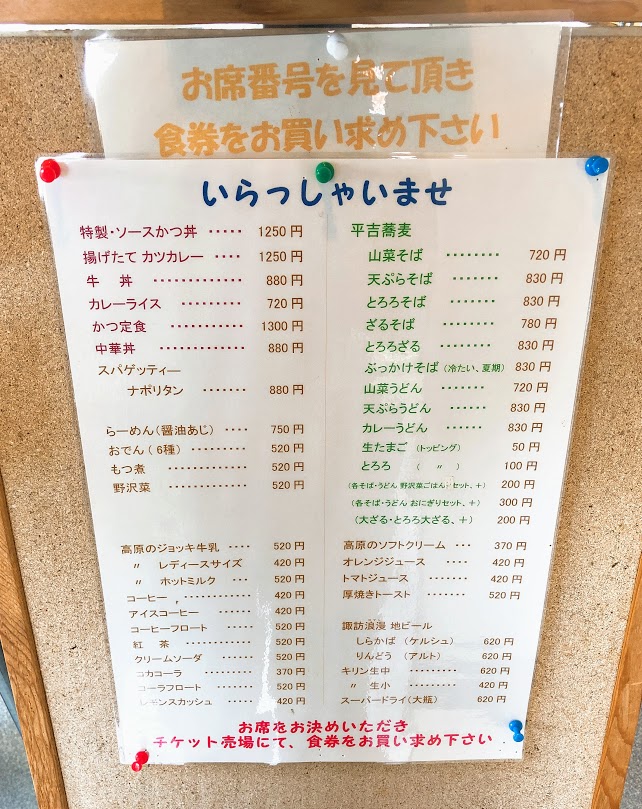 お席番号を見て頂き
食券をお買い求め下さい
いらっしゃいませ
特製・ソースかつ丼 ・・・・・ 1250 円
揚げたて カツカレー ・・・・ 1250 円
牛 丼 ・・・・・・・・・・・・ 880 円
カレーライス ・・・・・・・・・ 720 円
かつ定食 ・・・・・・・・・・・ 1300 円
中華丼 ・・・・・・・・・・・・・ 880 円
スパゲッティー
ナポリタン ・・・・・・・ 880 円
らーめん(醤油あじ) ・・・・ 750 円
おでん( 6種) ・・・・・・・・・ 520 円
もつ煮 ・・・・・・・・・・・・ 520 円
野沢菜 ・・・・・・・・・・・・ 520 円
高原のジョッキ牛乳 ・・・・ 520 円
〃 レディースサイズ 420 円
〃 ホットミルク ・・・ 520 円
コーヒー ・・・・・・・・・・・ 420 円
アイスコーヒー ・・・・・・・・ 420 円
コーヒーフロート ・・・・・ 520 円
紅 茶 ・・・・・・・・・・・・ 520 円
クリームソーダ ・・・・・・・ 520 円
コカコーラ ・・・・・・・・・ 370 円
コーラフロート ・・・・・・ 520 円
レモンスカッシュ ・・・・ 420 円
平吉蕎麦
山菜そば ・・・・・・・・ 720 円
天ぷらそば ・・・・・・・ 830 円
とろろそば ・・・・・・・ 830 円
ざるそば ・・・・・・・・ 780 円
とろろざる ・・・・・・・・ 830 円
ぶっかけそば (冷たい、夏期) 830 円
山菜うどん ・・・・・・・ 720 円
天ぷらうどん ・・・・・・ 830 円
カレーうどん ・・・・・・ 830 円
生たまご (トッピング) 50 円
とろろ ( 〃 ) 100 円
(各そば・うどん 野沢菜ごはん セット、+) 200 円
(各そば・うどん おにぎりセット、+) 300 円
(大ざる・とろろ大ざる、+) 200 円
高原のソフトクリーム ・・・ 370 円
オレンジジュース ・・・・ 420 円
トマトジュース ・・・・・・・ 420 円
厚焼きトースト ・・・・・・・ 520 円
諏訪浪漫 地ビール
しらかば (ケルシュ) 620 円
りんどう (アルト) 620 円
キリン生中 ・・・・・・・・・ 620 円
〃 生小 ・・・・・・・・ 420 円
スーパードライ(大瓶) 620 円
お席をお決めいただき
チケット売場にて、食券をお買い求め下さい